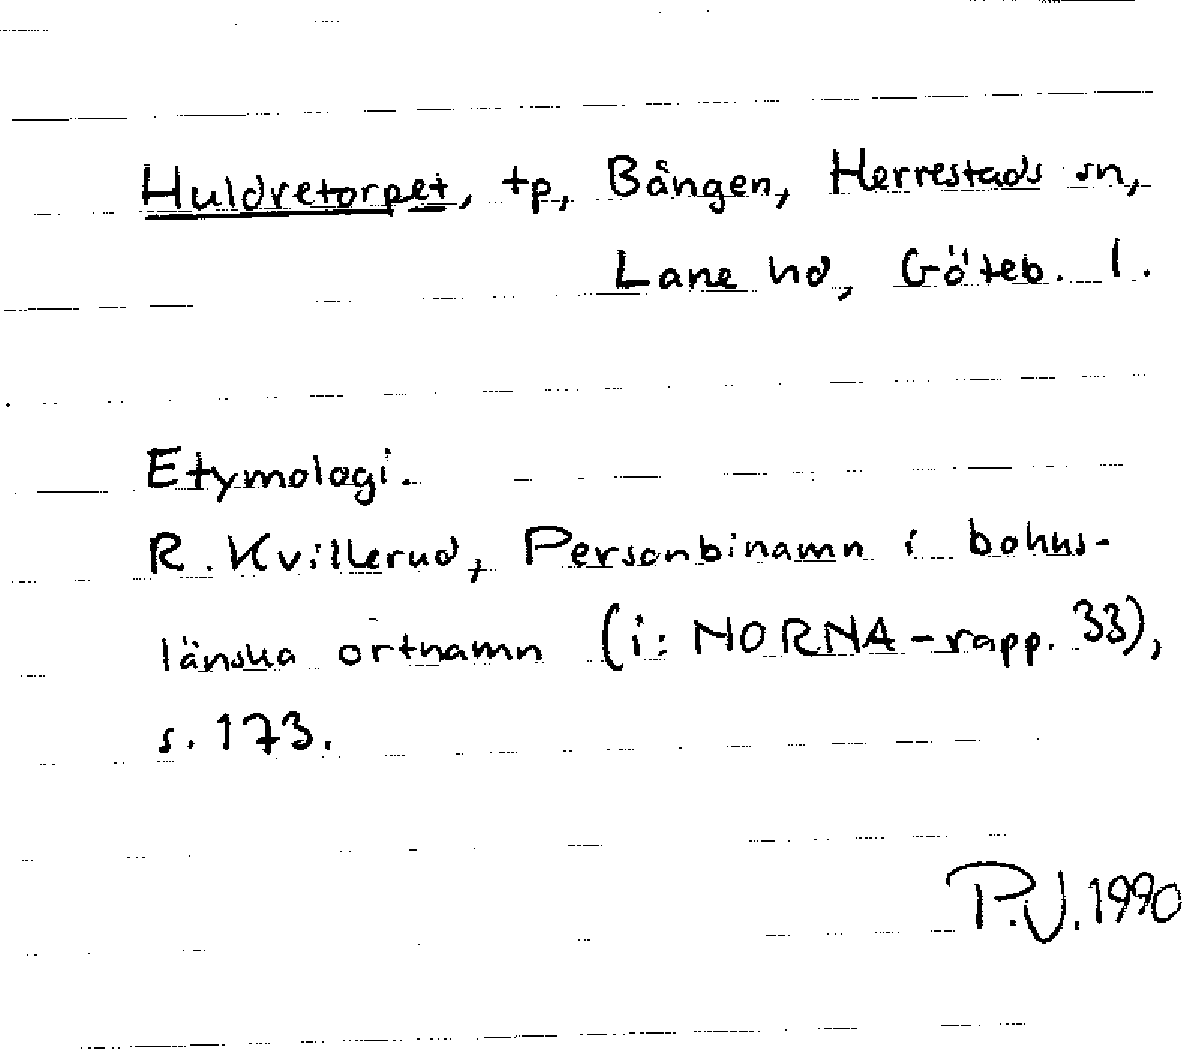 Huldretorpet, tp, Bången, Herrestads sn,
Lane hd, Göteb. l.
Etymologi.
R. Kvillerud, Personbinamn i bohus-
länska ortnamn (i: NORNA-rapp. 33),
s. 173.
P.V. 1990